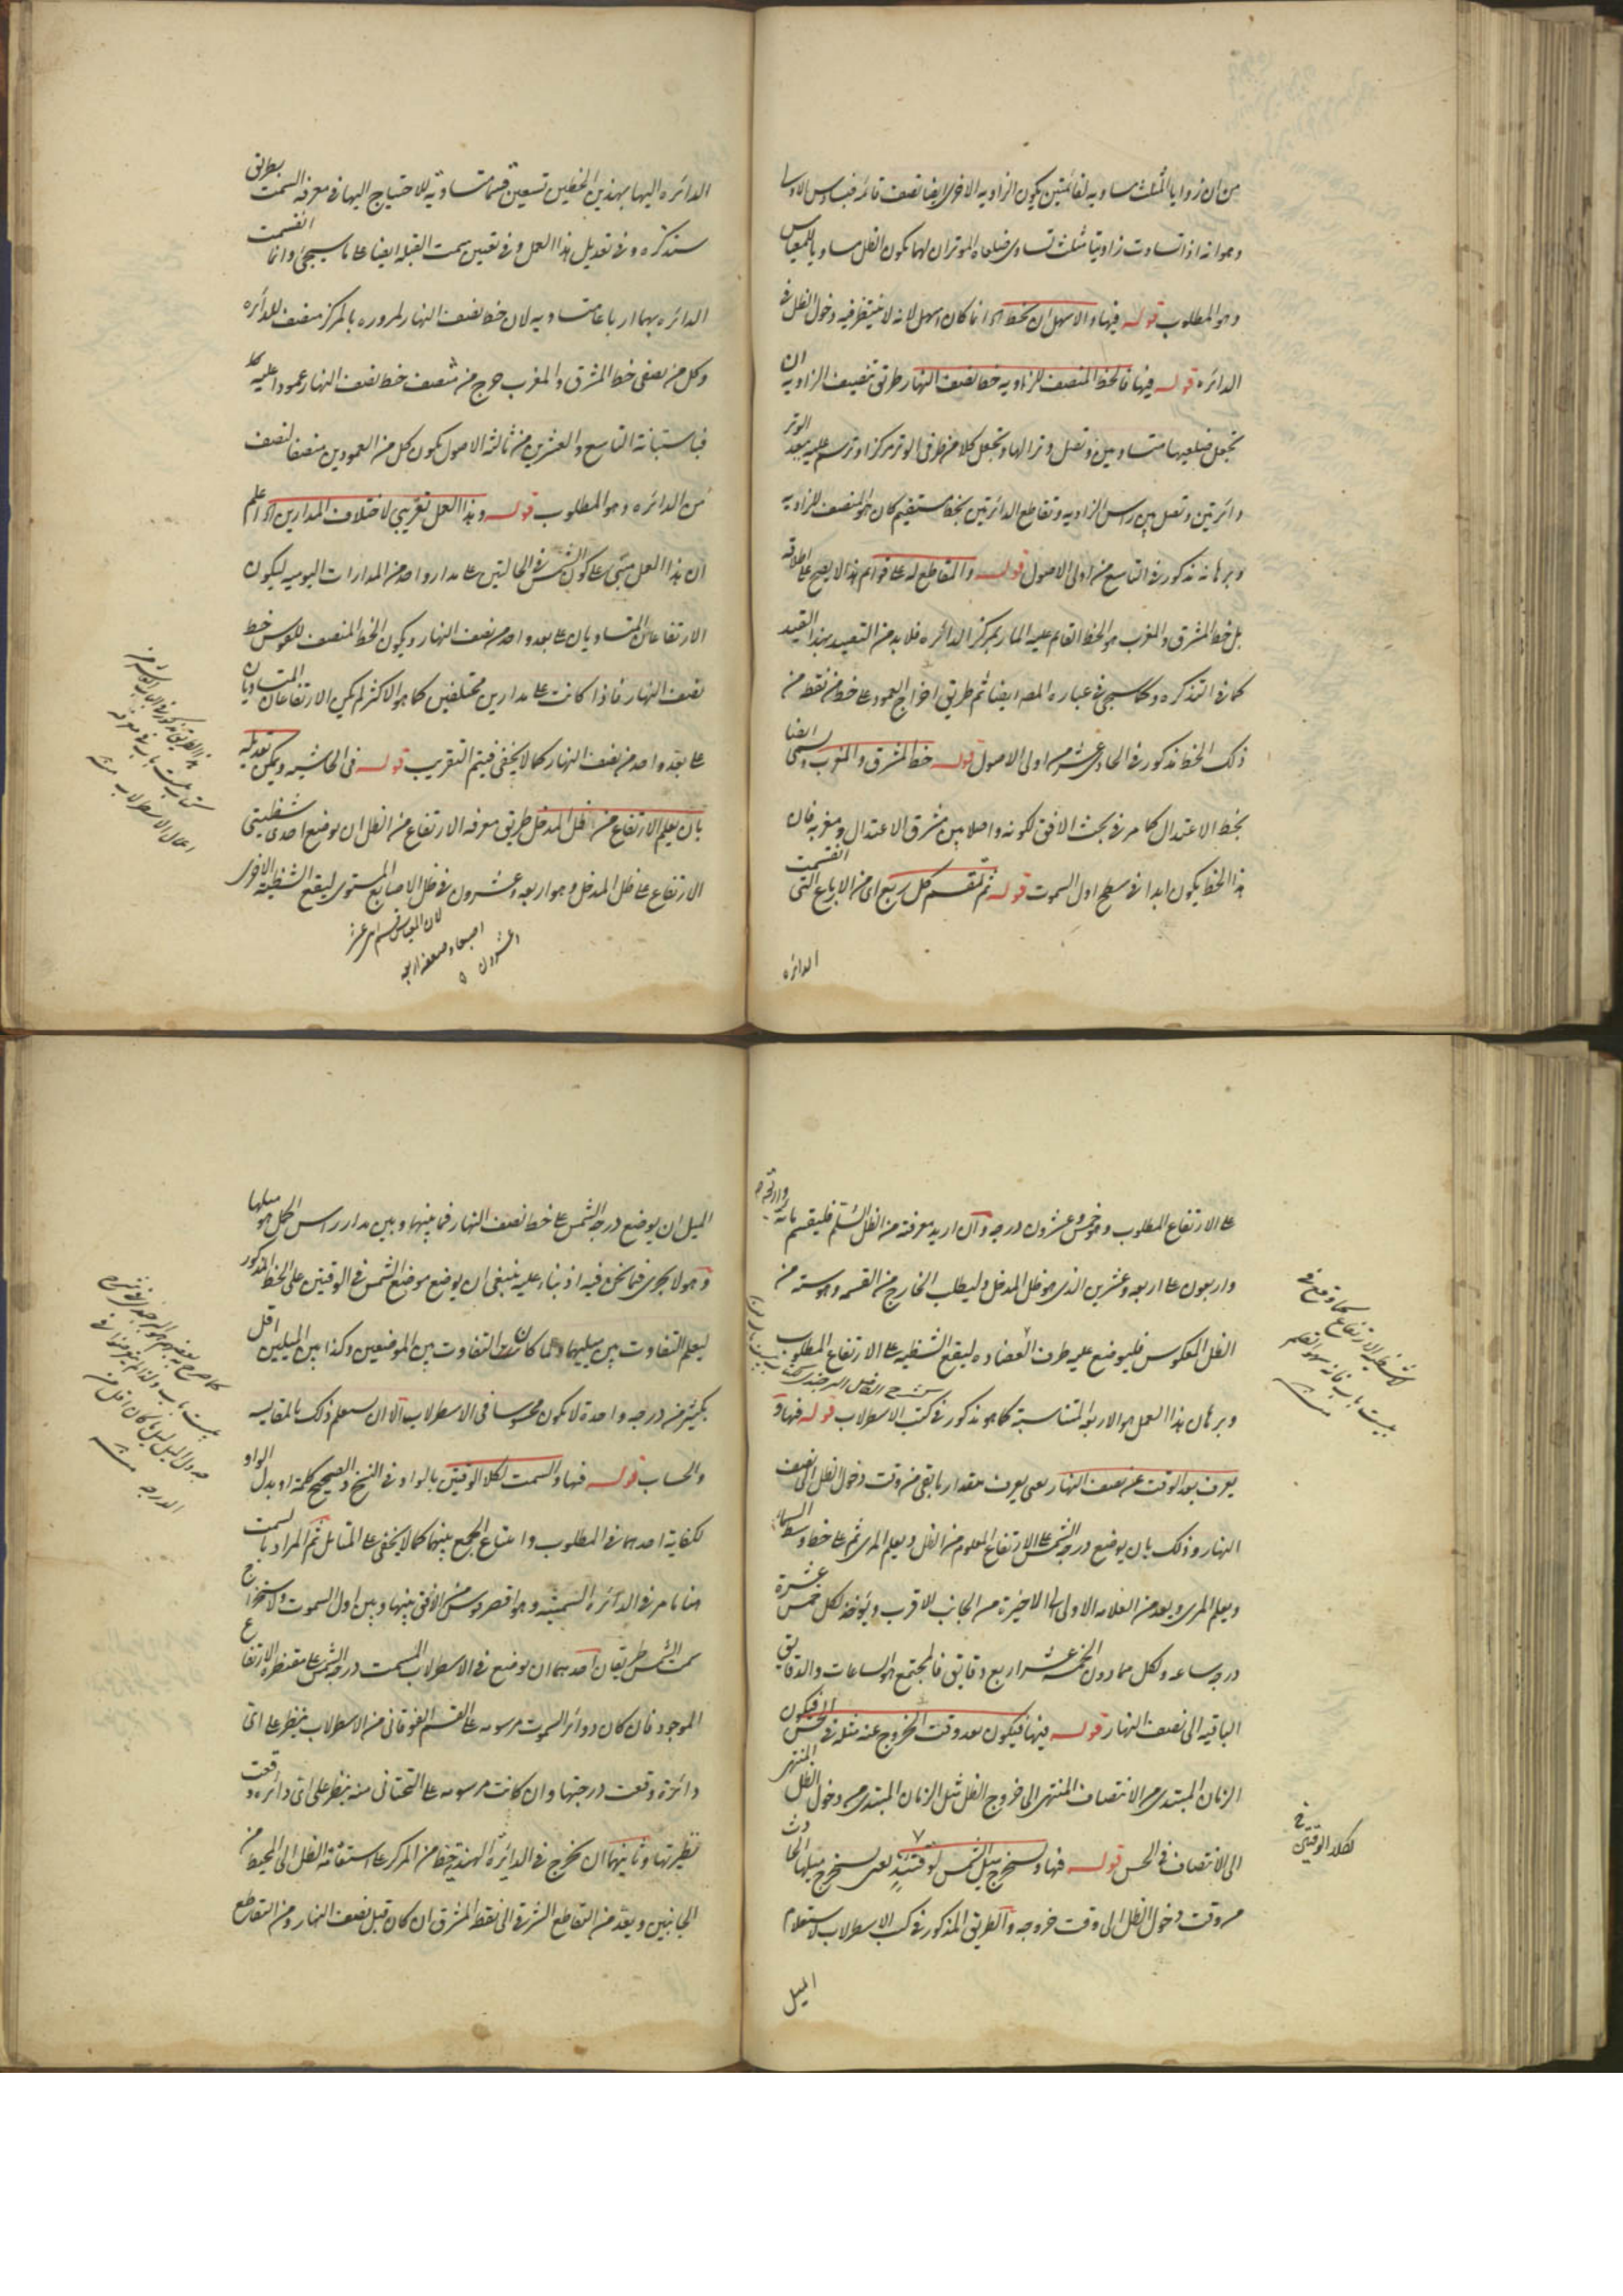 من ان زوايا المثلث مساوية لقائمتين يكون الزاوية الاخرى ايضا نصف قائمة فبسادس الاولى
وهو انه اذا تساوت زاويتا مثلث تساوى ضلعاه الموتران لهما يكون الظل مساويا للمقياس
وهو المطلوب قوله فيها والاسهل ان يخط اه انما كان اسهل لانه لا ينتظر فيه دخول الظل في
الدائرة قوله فيها فالخط المنصف للزاوية خط نصف النهار طريق تنصيف الزاوية ان
تجعل ضلعيها متساويين وتصل وترا لها وتجعل كلا من طرفى الوتر مركزا وترسم عليه ببعد الوتر
دائرتين وتصل بين راس الزاوية وتقاطع الدائرتين بخط مستقيم كان هو المنصف للزاوية
وبرهانه مذكور في التاسع من اولى الاصول قوله والمقاطع له على قوائم هذا لا يصح على اطلاقه
بل خط المشرق والمغرب هو الخط القائم عليه المار بمركز الدائرة فلا بد من التقييد بهذا القيد
كما في التذكرة وكما سيجئ في عبارة المصه ايضا ثم طريق اخراج العمود على خط من نقطة من
ذلك الخط مذكور في الحادى عشر من اولى الاصول قوله خط المشرق والمغرب ويسمى ايضا
بخط الاعتدال كما مر في بحث الافق لكونه واصلا بين مشرق الاعتدال ومغربه فان
هذا الخط يكون ابدا في سطح اول السموت قوله ثم تقسم كل ربع اى من الارباع التى انقسمت
الدائرة
الدائرة اليها بهذين الخطين تسعين قسما متساوية للاحتياج اليها في معرفة السمت بطريق
سنذكره وفي تعديل هذا العمل وفي تعيين سمت القبلة ايضا على ما سيجئ وانما انقسمت
الدائرة بهما ارباعا متساوية لان خط نصف النهار لمروره بالمركز منصف للدائرة
وكل من نصفى خط المشرق والمغرب خرج من منتصف خط نصف النهار عمودا عليه
فباستبانة التاسع والعشرين من ثالثة الاصول يكون كل من العمودين منصفا لنصف
من الدائرة وهو المطلوب قوله وهذا العمل تقريبي لاختلاف المدارين اه اعلم
ان هذا العمل مبنى على كون الشمس في الحالتين على مدار واحد من المدارات اليومية ليكون
الارتفاعان المتساويان على بعد واحد من نصف النهار ويكون الخط المنصف للقوس خط
نصف النهار فاذا كانت على مدارين مختلفين كما هو الاكثر لم يكن الارتفاعان المتساويان
على بعد واحد من نصف النهار كما لا يخفى فيتم التقريب قوله في الحاشية ويمكن تعديله
بان يعلم الارتفاع من ظل المدخل طريق معرفة الارتفاع من الظل ان يوضع احدى شظيتي
الارتفاع على ظل المدخل وهو اربعة وعشرون في ظل الاصابع المستوى ليقع الشظية الاخرى
لان المقياس قسم اثنى عشر
اصبعا وضعفه اربعة
وعشرون
على الارتفاع المطلوب وهو خمس وعشرون درجة وان اريد معرفته من الظل السلم فليقسم مائة
واربعون على اربعة وعشرين الذى هو ظل المدخل وليطلب الخارج من القسمة وهو ستة من
الظل المعكوس فليوضع عليه طرف العضادة ليقع الشظية على الارتفاع المطلوب
وبرهان هذا العمل هو الاربعة المتناسبة كما هو مذكور في كتب الاسطرلاب قوله فيها و
يعرف بعد الوقت عن نصف النهار يعنى يعرف مقدار ما بقى من وقت دخول الظل الى نصف
النهار وذلك بان يوضع درجة الشمس على الارتفاع المعلوم من الظل ويعلم المرى ثم على خط وسط السماء
ويعلم المرى ويعد من العلامة الاولى الى الاخيرة من الجانب الاقرب ويؤخذ لكل خمس عشرة
درجة ساعة ولكل مما دون الخمسة عشر اربع دقايق فالمجتمع هو الساعات والدقايق
الباقية الى نصف النهار قوله فيها فيكون بعد وقت الخروج عنه مثله في الحس اى فيكون
الزمان المبتدى من الانتصاف المنتهى الى خروج الظل مثل الزمان المبتدى من دخول الظل المنتهى
الى الانتصاف في الحس قوله فيها ويستخرج ميل الشمس لوقتئذ يعنى يستخرج ميلها الحادث
من وقت دخول الظل الى وقت خروجه والطريق المذكور في كتب الاسطرلاب لاستعلام
الميل
لكلا الوقتين
الميل ان يوضع درجة الشمس على خط نصف النهار فما بينها وبين مدار راس الحمل هو ميلها
وهو لا يجرى فيما نحن فيه اذ بناء عليه ينبغى ان يوضع موضع الشمس في الوقتين على الخط المذكور
ليعلم التفاوت بين ميليهما ولما كان التفاوت بين الموضعين وكذا بين الميلين اقل
بكثير من درجة واحدة لا يكون محسوسا في الاسطرلاب الا ان يستعلم ذلك بالمقايسة
والحساب قوله فيها والسمت لكلا الوقتين بالواو في النسخ والصحيح كلمة او بدل الواو
لكفاية احدهما في المطلوب وامتناع الجمع بينهما كما لا يخفى على المتامل ثم المراد بالسمت
هنا ما مر في الدائرة السمتية وهو اقصر قوس من الافق بينها وبين اول السموت ولاستخراج
سمت الشمس طريقان احدهما ان يوضع في الاسطرلاب المسمت درجة الشمس على مقنطرة الارتفاع
الموجود فان كان دوائر السموت مرسومة على القسم الفوقانى من الاسطرلاب ينظر على اى
دائرة وقعت درجتها وان كانت مرسومة على التحتانى منه ينظر على اى دائرة وقعت
نظيرتها وثانيهما ان يخرج في الدائرة الهندية خط من المركز على استقامة الظل الى المحيط من
الجانبين ويعد من التقاطع الشرقى الى نقطة المشرق ان كان قبل نصف النهار ومن التقاطع